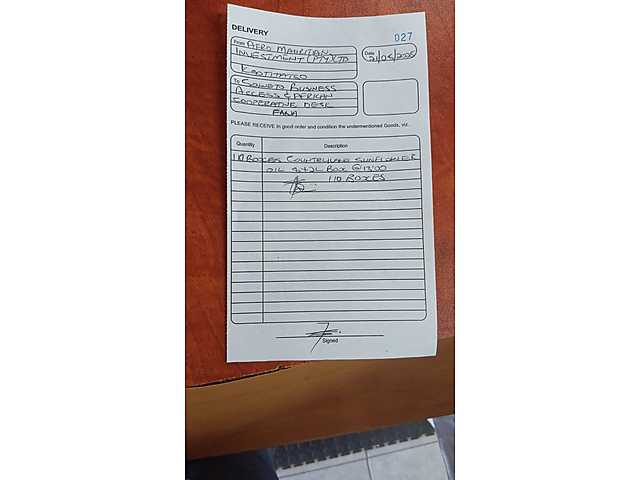 DELIVERY
027
From AFRO MAURITIAN
INVESTMENT (PTY) LTD
Date 21/05/2025
To SOWETO BUSINESS
ACCESS & AFRICAN
COOPERATIVE DESK
FANA
PLEASE RECEIVE in good order and condition the undermentioned Goods, viz.
Quantity Description
110 BOXES SUNFLOWER
OIL BOX @
110 BOXES
Signed